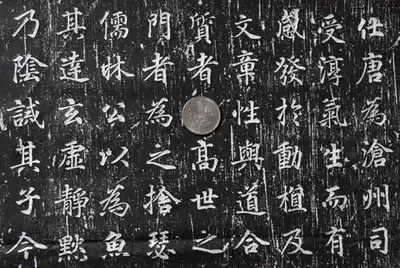 仕唐為滄州司
受淳氣生而有
感發於動植及
文章性與道合
質者高世之
門者為之捨瑟
儒公以為魚
其達玄虛靜默
乃陰誡其子今